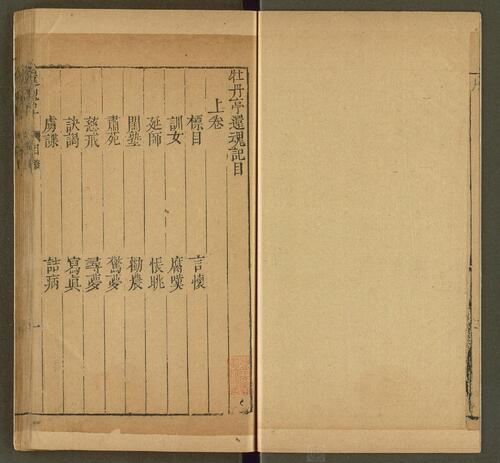 牡丹亭還魂記目
上卷
標目 言懷
訓女 腐嘆
延師 悵眺
閨塾 勸農
肅苑 驚夢
慈戒 尋夢
訣謁 寫眞
虜諜 詰病
還魂記